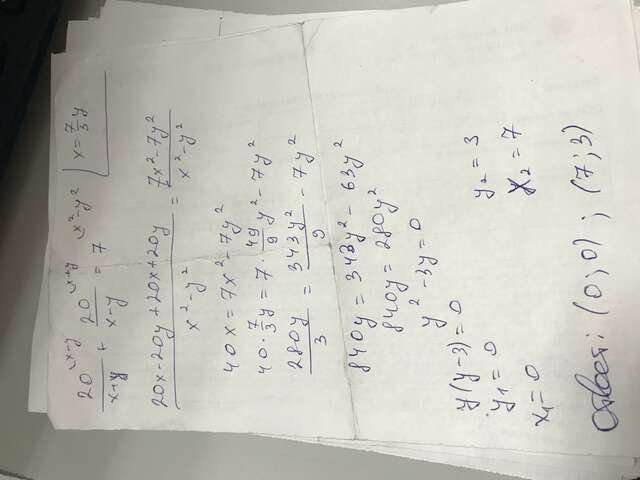 20^(x-y)/(x+y) + 20^(x+y)/(x-y) = 7^(x²-y²) | x = 7/3 y
(20x-20y+20x+20y)/(x²-y²) = (7x²-7y²)/(x²-y²)
40x = 7x²-7y²
40·7/3 y = 7·49/9 y² - 7y²
280y/3 = 343y²/9 - 7y²
840y = 343y² - 63y²
840y = 280y²
y²-3y=0
y(y-3)=0
y₁=0 y₂=3
x₁=0 x₂=7
Ответ: (0;0); (7;3)